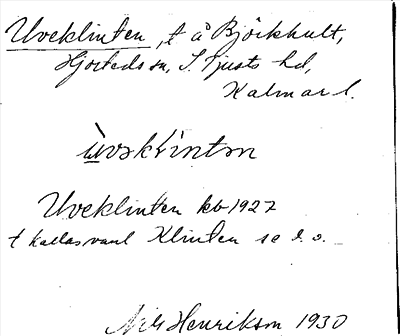 Uveklinten, t å Björkhult,
Hjorteds sn, S. Tjusts hd,
Kalmar l.
ùvəklintən
Uveklinten kb 1927
t kallas vanl Klinten se d. o.
Nils Henrikson 1930